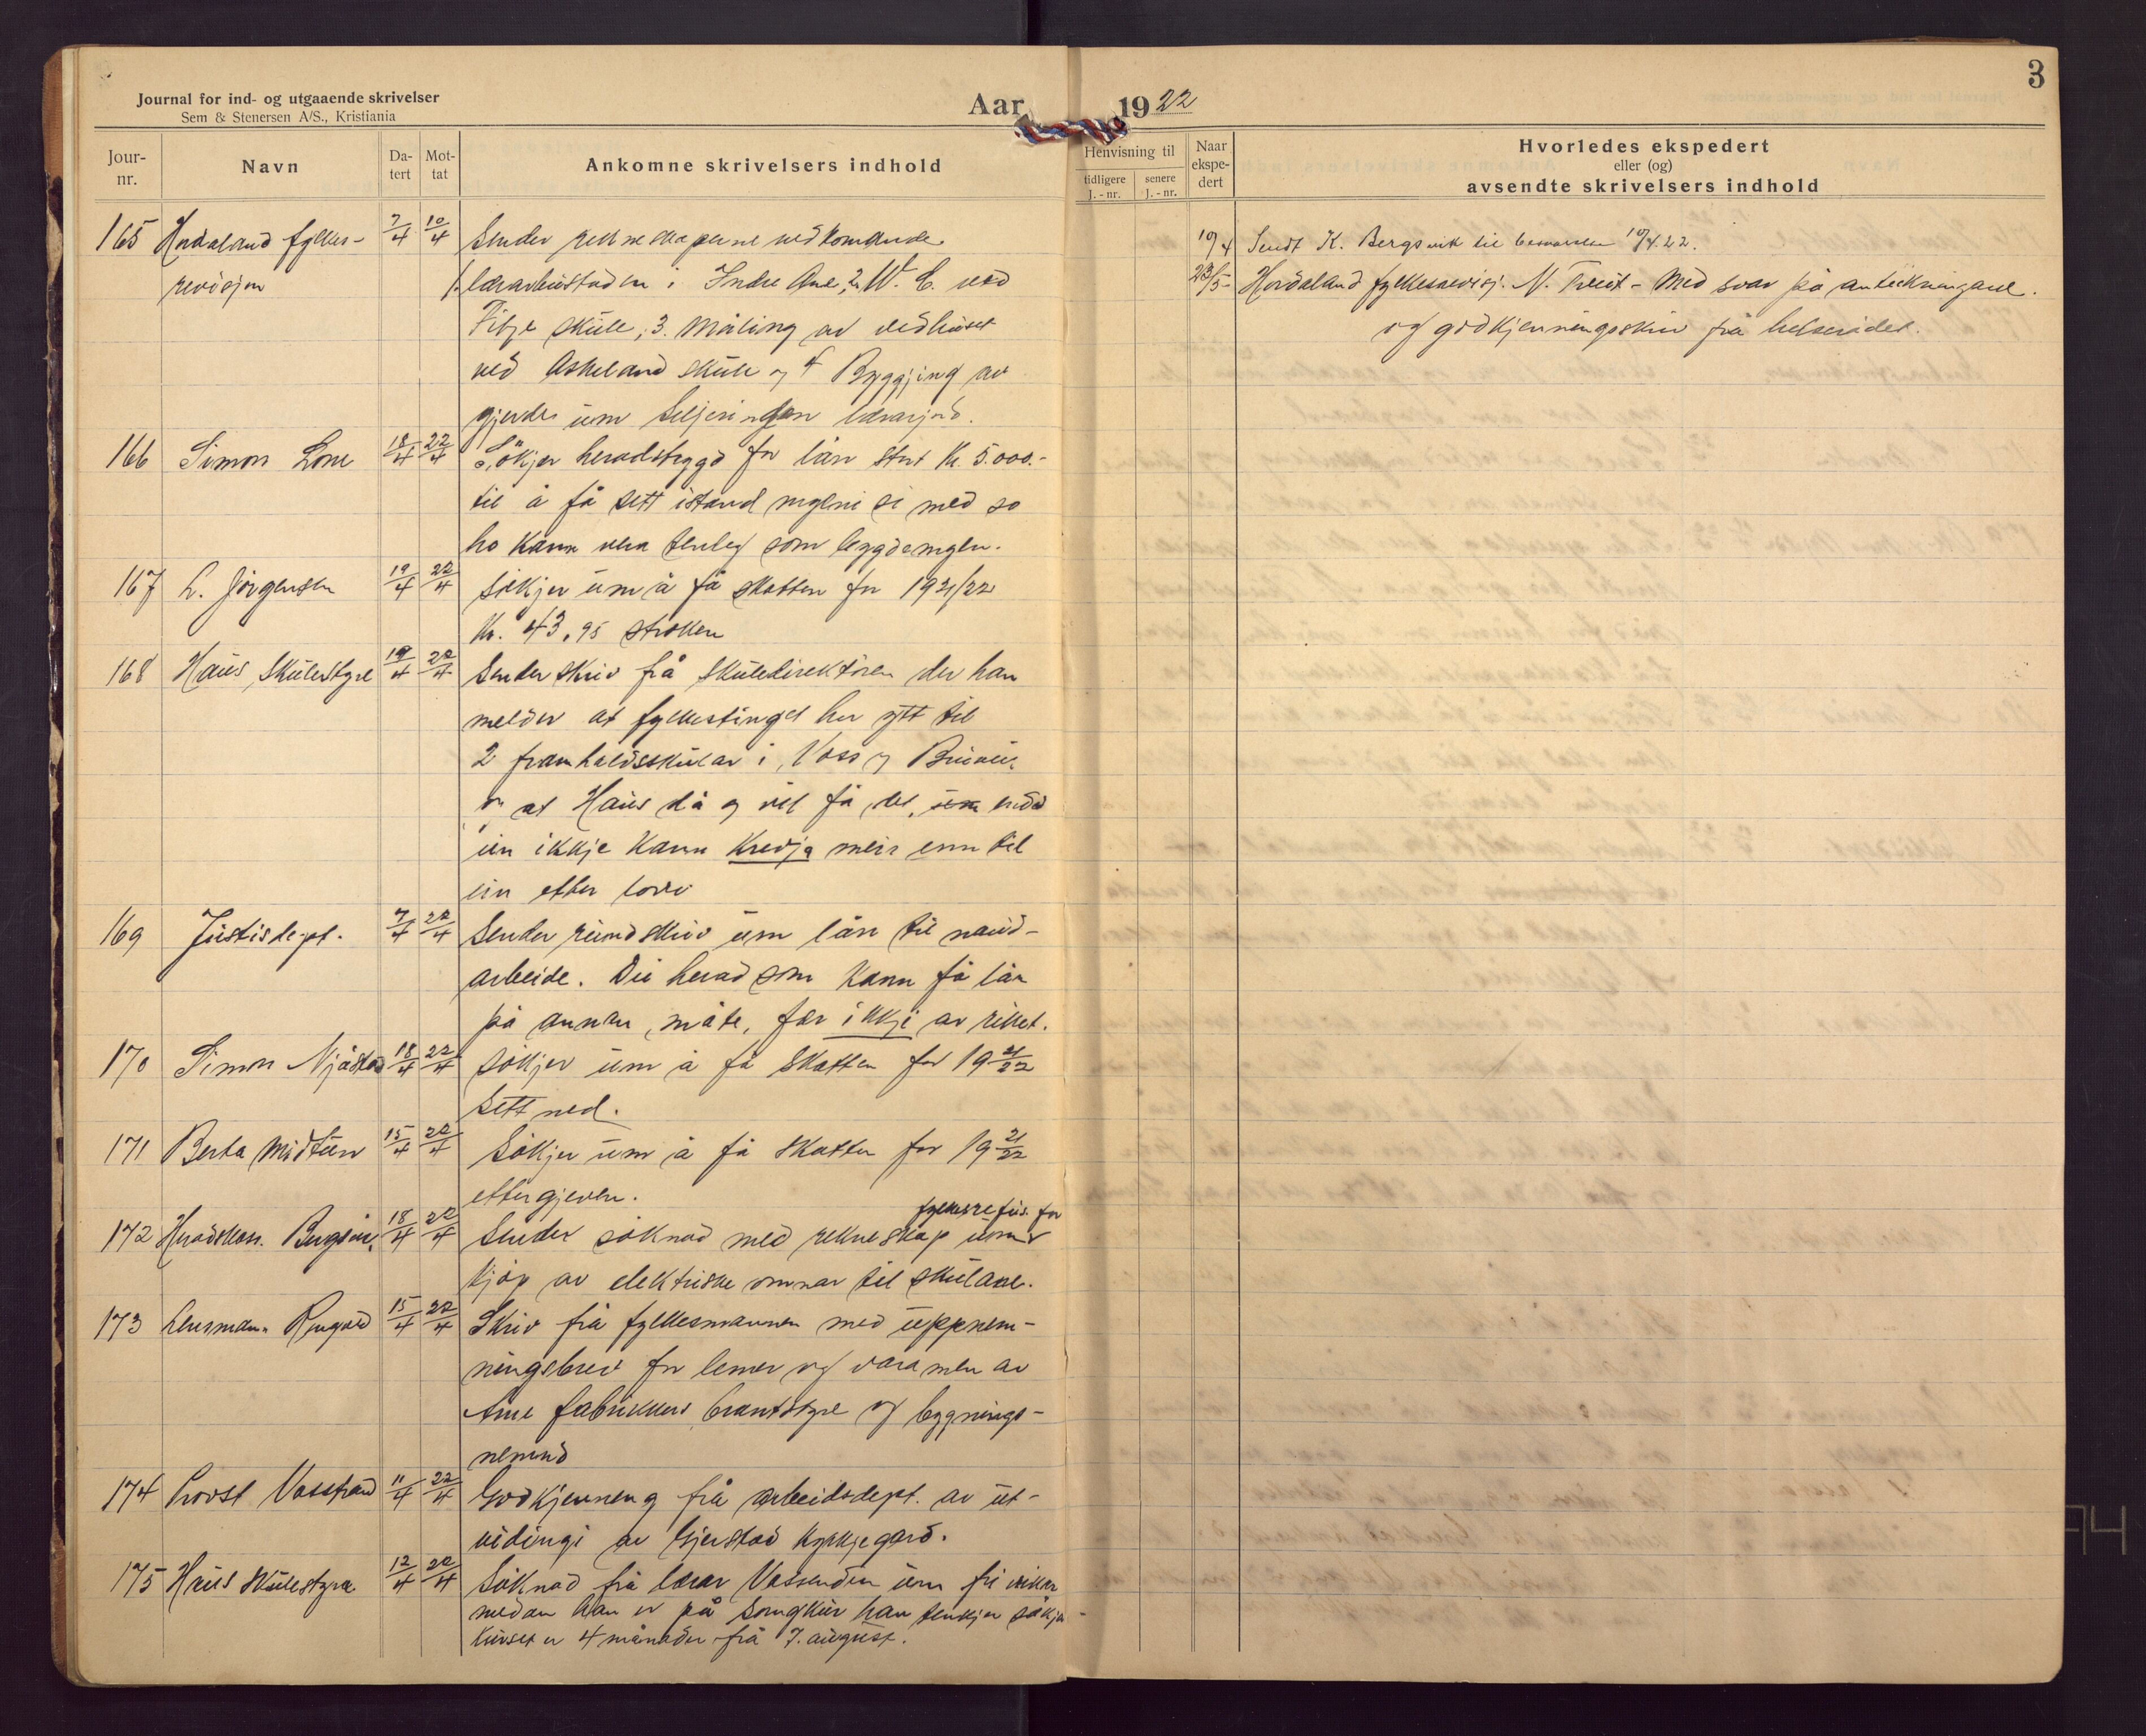 Journal for ind- og utgaaende skrivelser
Sem & Stenersen A/S., Kristiania
Aar 1922
3
Jour-nr.
Navn
Da-tert
Mot-tat
Ankomne skrivelsers indhold
Henvisning til
tidligere J.-nr.
senere J.-nr.
Naar ekspe-dert
Hvorledes ekspedert
eller (og)
avsendte skrivelsers indhold
165 Hordaland fylkes- 7/4 10/4 Sender rekneskaperne vedkomande
revisjon 1. lærarbustaden i Indre Arne, 2. W. C. ved
Fitje skule, 3. Måling av vedhuset
ved Askeland skule og 4 Byggjing av
gjerde um Seljeringen lærarjord.
19/4 Sendt K. Bergsvik til 19/4.22.
23/5 Hordaland fylkesrevisj. N. Med svar på antekningane.
og godkjenningsskriv frå helserådet.
166 Simon Lone 18/4 22/4 Søkjer heradstyret for lån stort Kr. 5.000.-
til å få sett istand mylni si med so
ho kann vera tenleg som bygdemyln.
167 L. Jørgensen 19/4 22/4 Søkjer um å få skatten for 1921/22
Kr. 43,95 stroken
168 Haus skulestyre 19/4 22/4 Sender skriv frå skuledirektøren der han
melder at fylkestinget har ytt til
2 framhaldsskular i Voss og Bruvik
og at Haus då og vil få det, um endå
ein ikkje kann krevja meir enn til
ein etter lovi
169 Justisdept. 7/4 22/4 Sender rundskriv um lån til naud-
arbeide. Dei herad som kann få lån
på annan måte, fær ikkje av riket.
170 Simon Njåstad 18/4 22/4 Søkjer um å få skatten for 1921/22
sett ned.
171 Berta Midttun 15/4 22/4 Søkjer um å få skatten for 1921/22
ettergjeven.
172 Heradskass. Bergsvik 18/4 22/4 Sender søknad med rekneskap um fylkesrefus. for
kjøp av elektriske omnar til skulane.
173 Lensmann 15/4 22/4 Skriv frå fylkesmannen med uppnem-
ningsbrev for lemer og varamen av
Arne fabrikkers brandstyre og bygnings-
nemnd
174 Provst Vasstrand 11/4 22/4 Godkjenning frå arbeidsdept. av ut-
vidingi av Gjerstad kyrkjegard.
175 Haus skulestyre 12/4 22/4 Søknad frå lærar Vassenden um fri vikar
medan han er på songkurs han tenkjer søkja
Kurset er 4 månader frå 7. august.